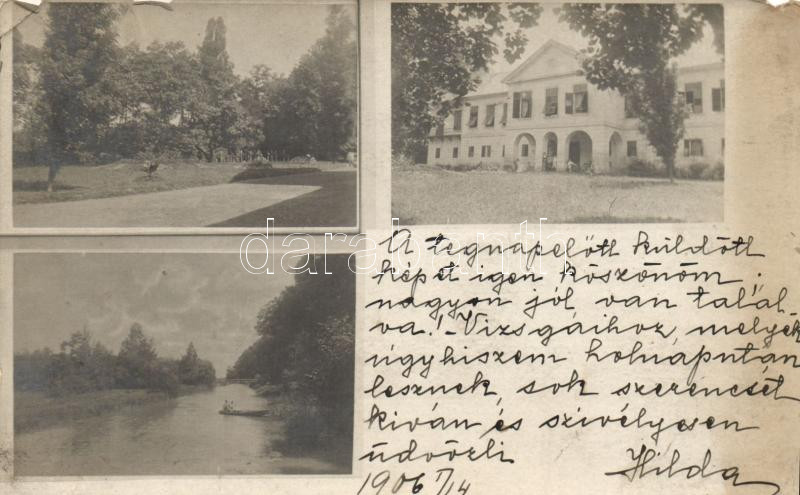 A tegnapelőtt küldött
képet igen köszönöm;
nagyon jól van talál-
va! - Vizsgáihoz, melyek
úgyhiszem holnapután
lesznek, sok szerencsét
kiván és szivélyesen
üdvözli
Hilda
1906 7/14
darabanth